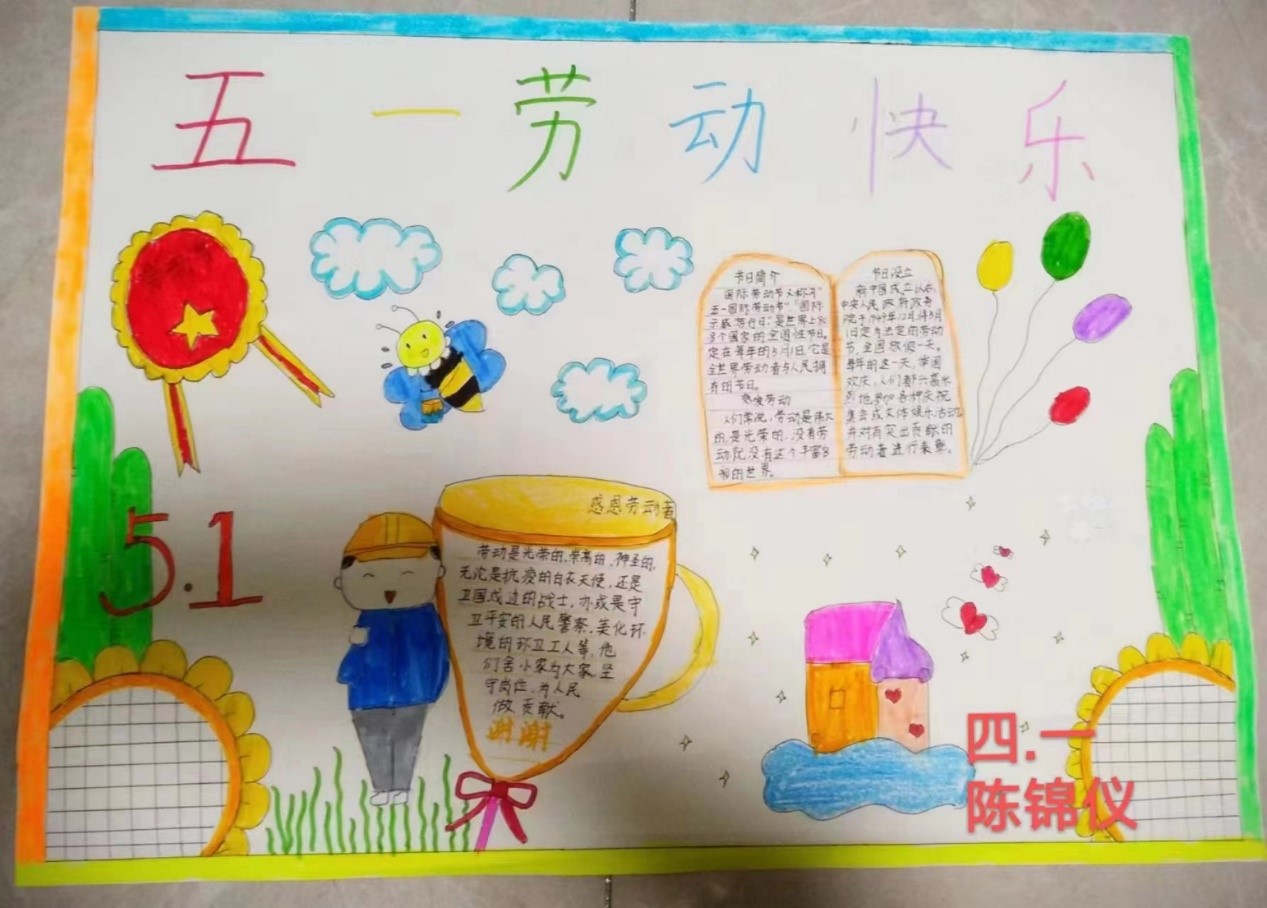 五一劳动快乐
节日简介
国际劳动节又称为"
五一国际劳动节""国际
示威游行日"是世界上80
多个国家的全国性节日。
定在每年的5月1日它是
全世界劳动者与人民拥
有的节日。
热爱劳动
人们常说，劳动是伟大
的，是光荣的，没有劳
动就没有这个丰富多
彩的世界。
节日设立
新中国成立以后，
中央人民政府政务
院于1949年12月将5月
1日定为法定的劳动
节，全国放假一天。
每年的这一天，举国
欢庆，人们都兴高采
烈地参加各种庆祝
集会或文体娱乐活动，
并对有突出贡献的
劳动者进行表彰。
5.1
感恩劳动者
劳动是光荣的，崇高的，神圣的，
无论是抗疫的白衣天使，还是
卫国戍边的战士，亦或是守
卫平安的人民警察，美化环
境的环卫工人等，他
们舍小家为大家，坚
守岗位，为人民
做贡献。
谢谢
四.一
陈锦仪